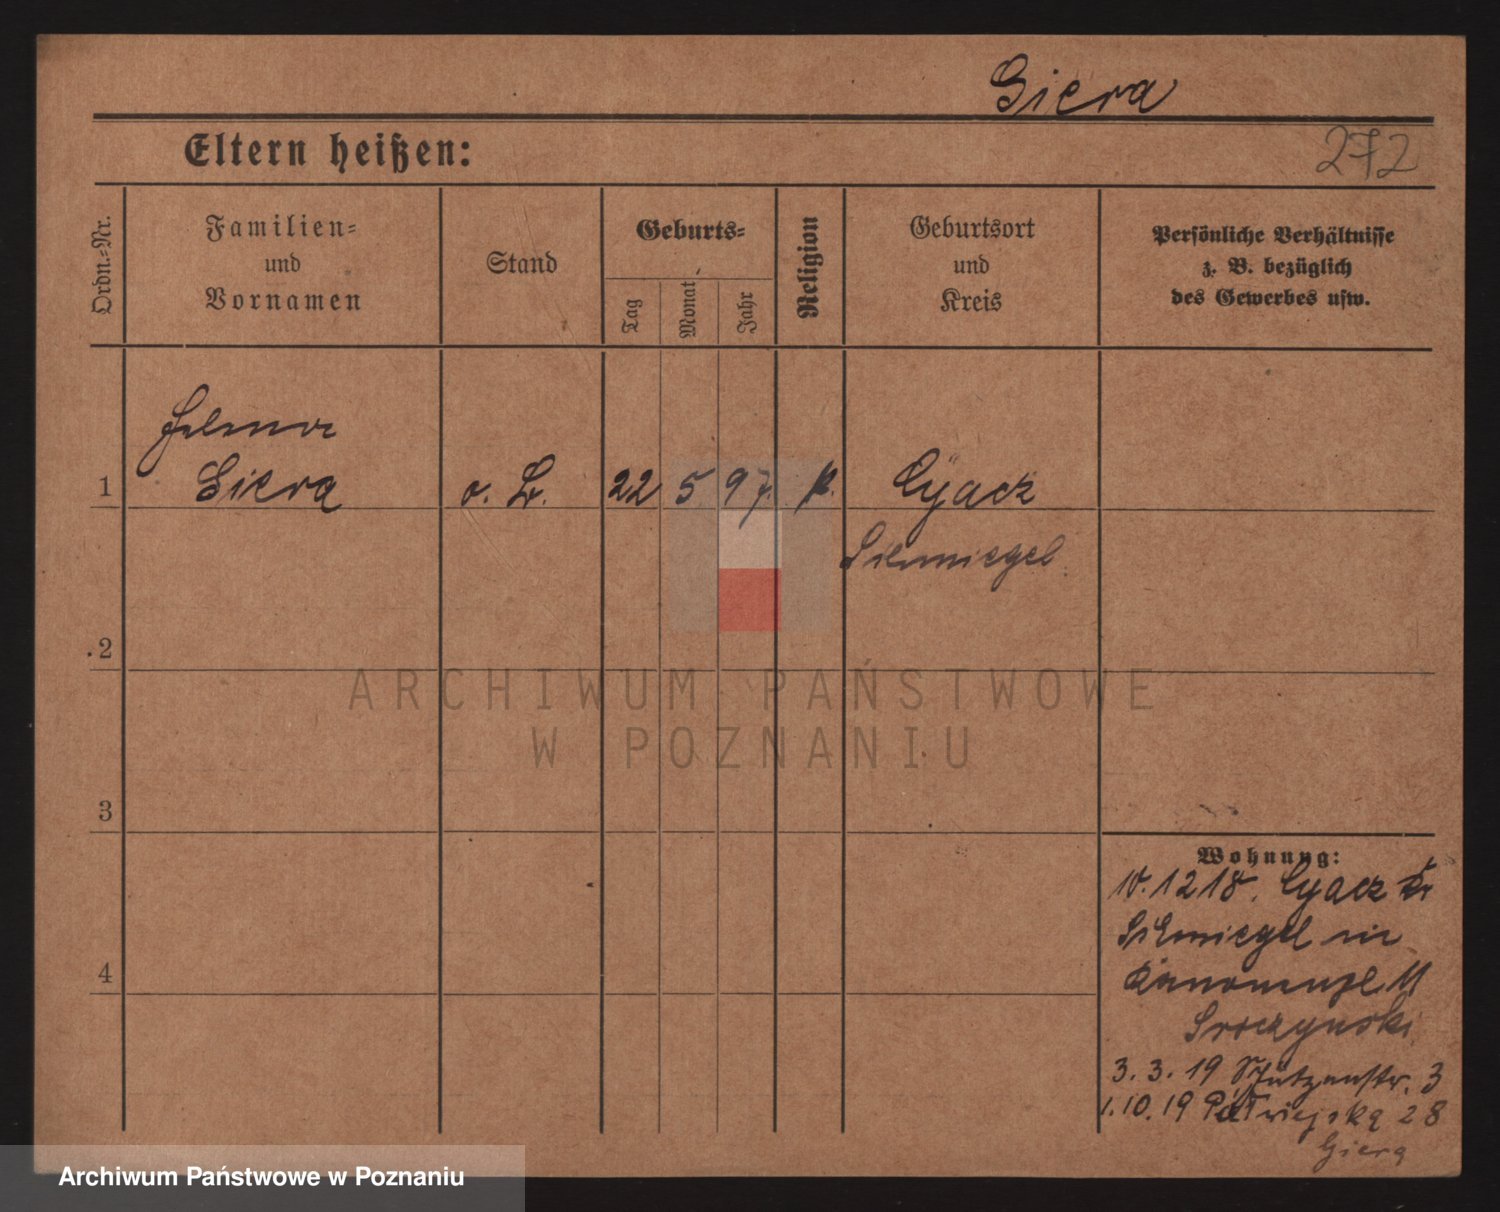 Giera
Eltern heißen:
272
Ordn.-Nr.
Familien-
und
Vornamen
Stand
Geburts-
Tag
Monat
Jahr
Religion
Geburtsort
und
Kreis
Persönliche Verhältnisse
z. B. bezüglich
des Gewerbes usw.
Helena
1 Giera o. B. 22 5. 97. k. Czacz
Schmiegel
2
3
Wohnung:
10. 12 18. Czacz Kr
Schmiegel
4
Kanonenpl. 11
Sroczynski
3. 3. 19 Schützenstr. 3
1. 10. 19 28
Giera
ARCHIWUM PAŃSTWOWE
W POZNANIU
Archiwum Państwowe w Poznaniu